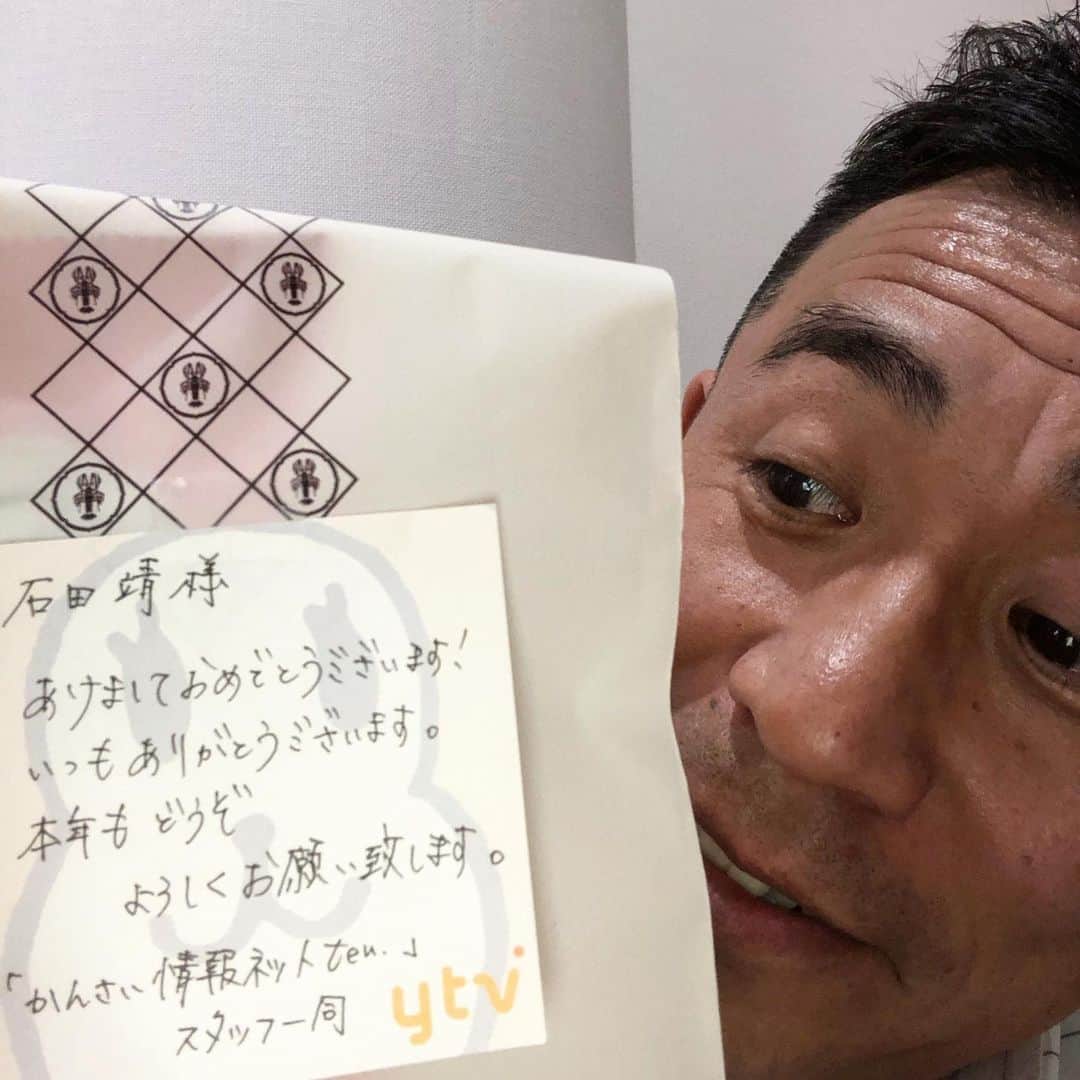 石田靖様
あけましておめでとうございます!
いつもありがとうございます。
本年もどうぞ
よろしくお願い致します。
「かんさい情報ネットten.」
スタッフ一同
ytv